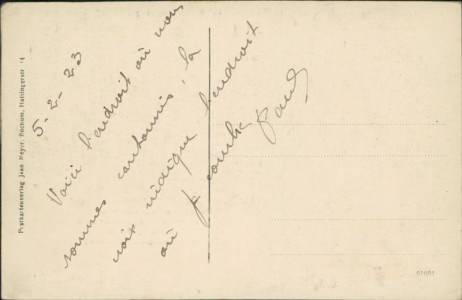 5-2-23
Voici l'endroit où nous
sommes cantonnés, la
croix indique l'endroit
où je couche
Paul
Postkartenverlag Jean Meyer, Bochum, Hattingerstr. 14